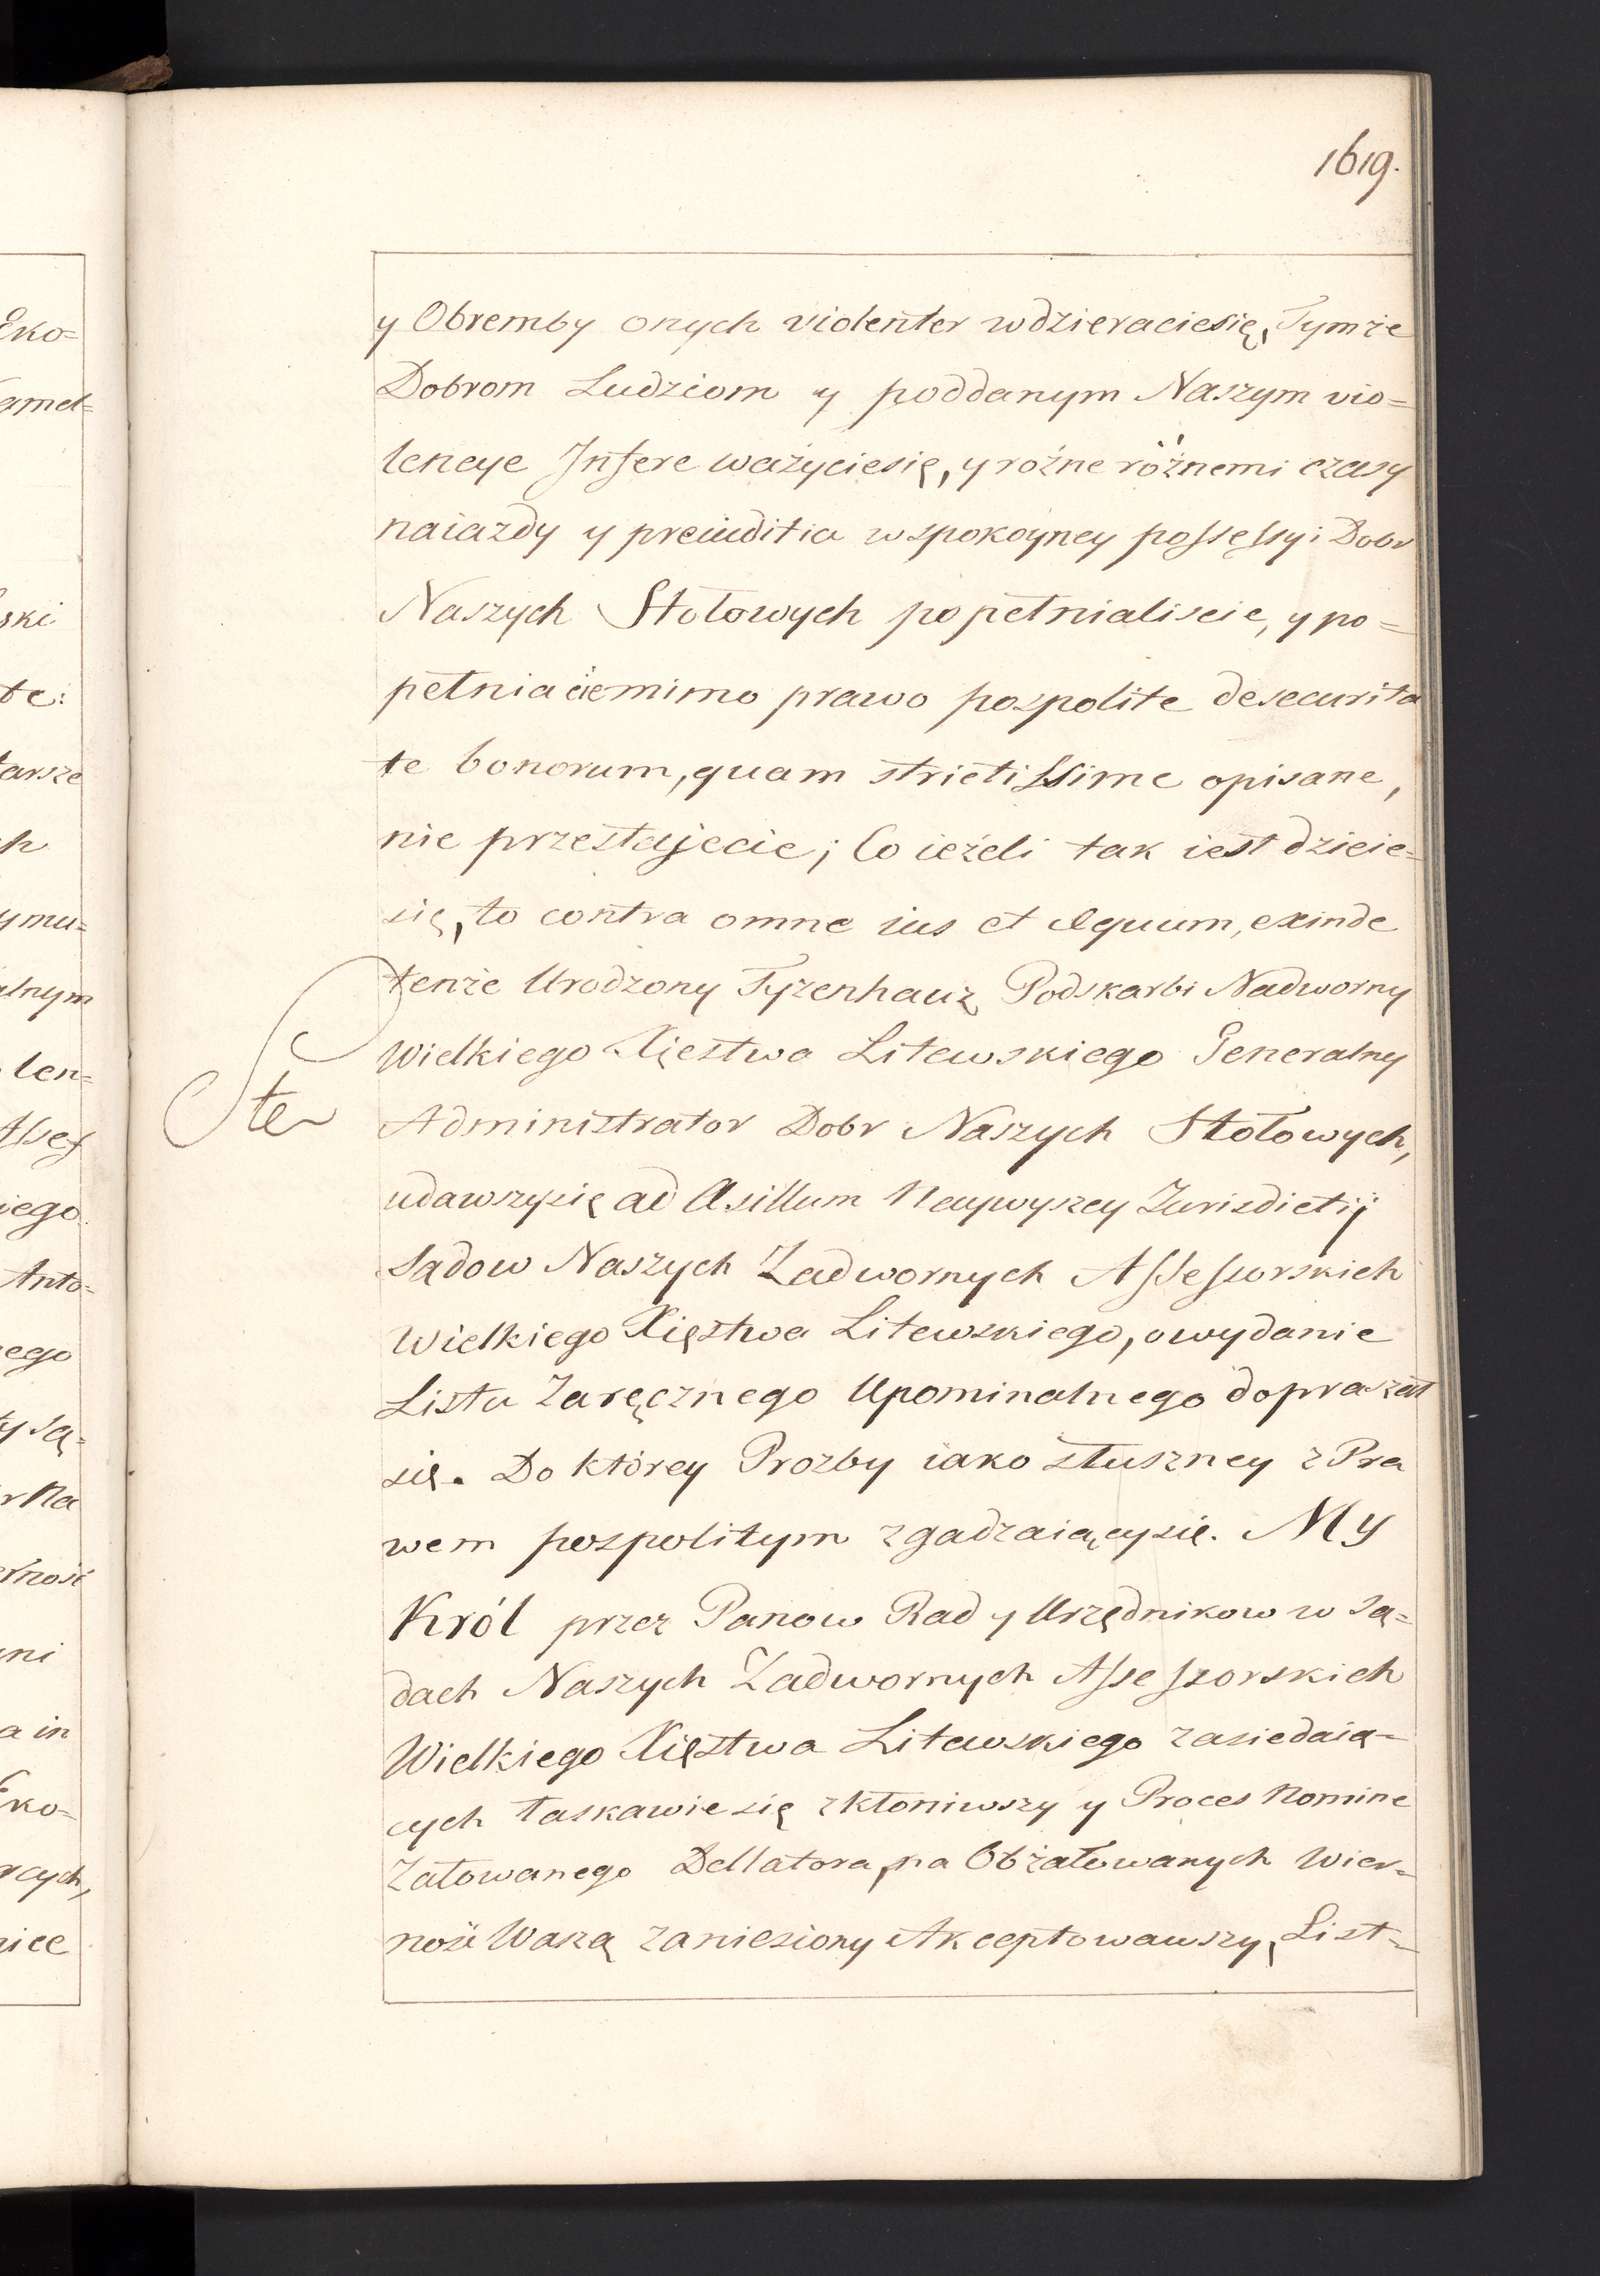 1619.
y Obremby onych violenter wdzieraciesię, Tymże
Dobrom Ludziom y poddanym Naszym vio=
lencye Jnfere ważyciesię, y rożne różnemi czasy
naiazdy y preiuditia wspokoyney possessyi Dobr
Naszych Stołowych popełnialiscie, y po=
pełniacie mimo prawo pospolite desecurita
te bonorum, quam strictissime opisane,
nie przestajecie; Co ieżeli tak iest dzieie=
się, to contra omne ius et Aequum, exinde
tenże Urodzony Tyzenhauz Podskarbi Nadworny
Wielkiego Xięstwa Litewskiego Generalny
Administrator Dobr Naszych Stołowych,
udawszysię ad Asillum Naywyszey Jurisdictij
Sądow Naszych Zadwornych Assessorskich
Wielkiego Xięstwa Litewskiego, owydanie
Listu Zaręcznego Upominalnego dopraszał
się. Do którey Prozby iako słuszney z Pra
wem pospolitym zgadzaiącysię. My
Król przez Panow Rad y Urzędnikow w Są=
dach Naszych Zadwornych Assessorskich
Wielkiego Xięstwa Litewskiego zasiedaią=
cych łaskawie się zkłoniwszy y Proces Nomine
Załowanego Dellatora, na Obżałowanych Wier=
ność Waszą zaniesiony Akceptowawszy, List=